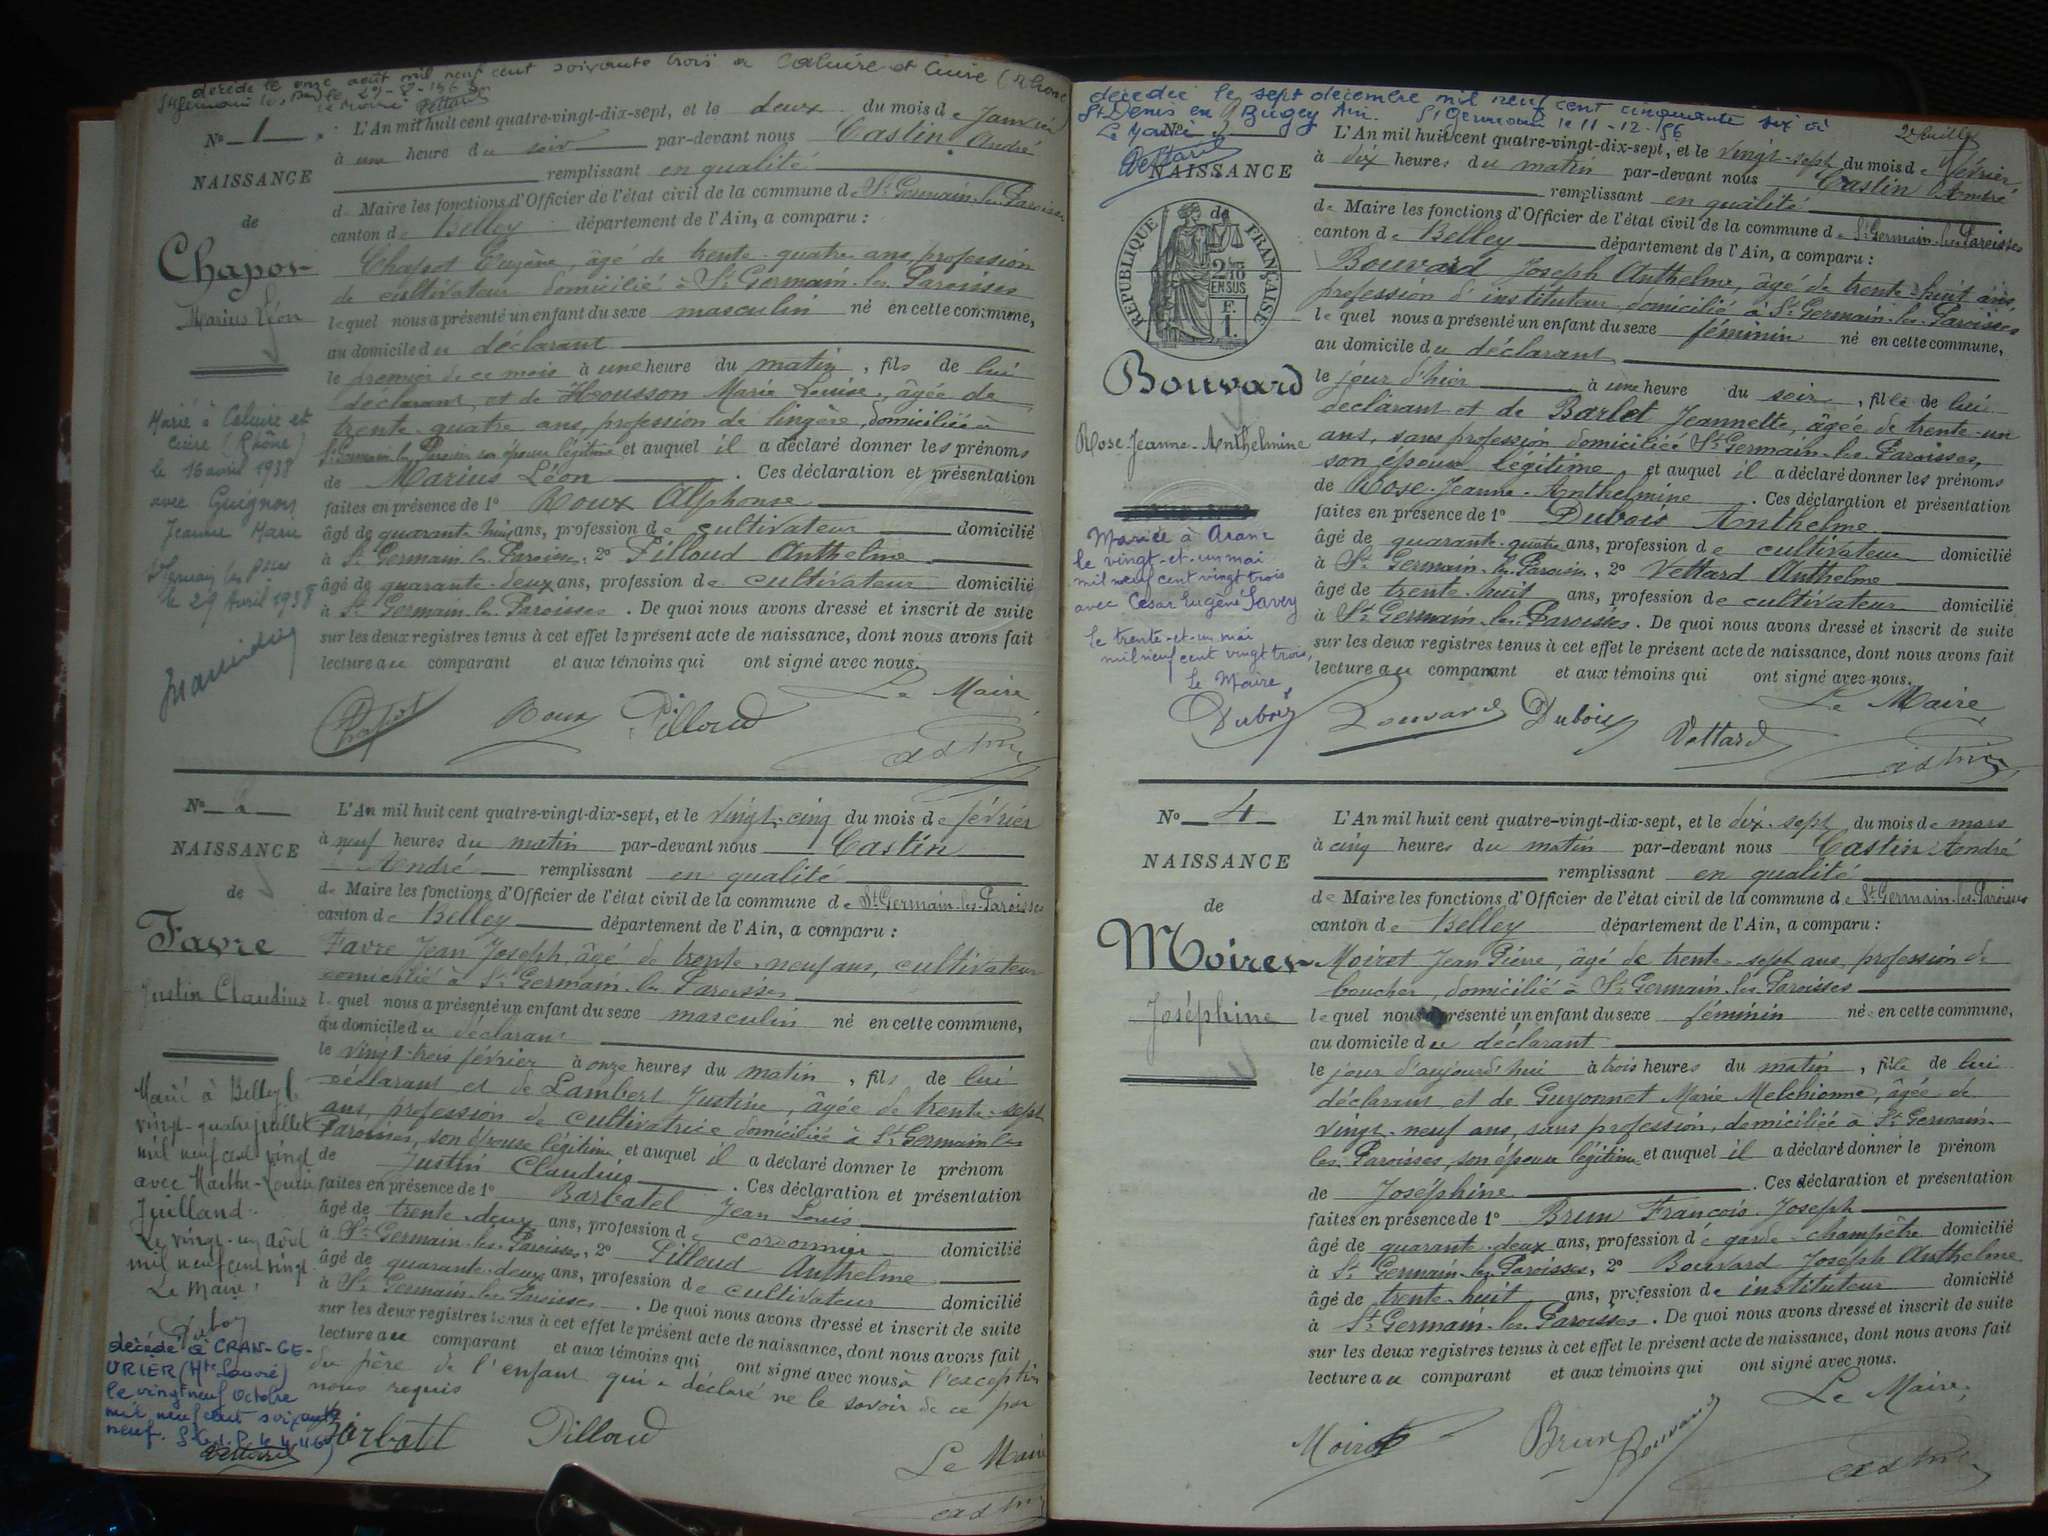 décédé le onze août mil neuf cent soixante trois à Caluire et Cuire (Rhône)
St Germain les
Le Maire Vettard
No 1
NAISSANCE
de
Chapot
Marius Léon
Marié à Caluire et
Cuire (Rhône)
le 16 avril 1938
avec Guignon
Jeanne Marie
St Germain les Pses
le 29 Avril 1938
L'An mil huit cent quatre-vingt-dix-sept, et le deux du mois de Janvier
à une heure du soir par-devant nous Castin André
remplissant en qualité
de Maire les fonctions d'Officier de l'état civil de la commune de St Germain-les-Paroisses
canton de Belley département de l'Ain, a comparu :
Chapot Eugène, âgé de trente-quatre ans, profession
de cultivateur domicilié à St Germain-les-Paroisses
lequel nous a présenté un enfant du sexe masculin né en cette commune,
au domicile du déclarant
le premier de ce mois à une heure du matin, fils de lui
déclarant, et de Housson Marie Louise, âgée de
trente-quatre ans, profession de lingère, domiciliée à
St Germain-les-Paroisses son épouse légitime et auquel il a déclaré donner les prénoms
de Marius Léon . Ces déclaration et présentation
faites en présence de 1o Roux Alphonse
âgé de quarante huit ans, profession de cultivateur domicilié
à St Germain-les-Paroisses, 2o Pilloud Anthelme
âgé de quarante-deux ans, profession de cultivateur domicilié
à St Germain-les-Paroisses. De quoi nous avons dressé et inscrit de suite
sur les deux registres tenus à cet effet le présent acte de naissance, dont nous avons fait
lecture au comparant et aux témoins qui ont signé avec nous.
Le Maire
Chapot Roux Pilloud
Castin
No 2
NAISSANCE
de
Favre
Justin Claudius
Marié à Belley le
vingt-quatre juillet
mil neuf cent vingt
avec Marthe-Louise
Juilland.
Le vingt-un août
mil neuf cent vingt
Le Maire,
Dubois
décédé à CRAN-GE-
URIER (Hte Savoie)
le vingt neuf Octobre
mil neuf cent soixante
neuf. St G. l. P. le
Vettard
L'An mil huit cent quatre-vingt-dix-sept, et le vingt-cinq du mois de février
à neuf heures du matin par-devant nous Castin
André remplissant en qualité
de Maire les fonctions d'Officier de l'état civil de la commune de St Germain-les-Paroisses
canton de Belley département de l'Ain, a comparu :
Favre Jean Joseph, âgé de trente-neuf ans, cultivateur
domicilié à St Germain-les-Paroisses
lequel nous a présenté un enfant du sexe masculin né en cette commune,
au domicile du déclarant
le vingt-trois février à onze heures du matin, fils de lui
déclarant et de Lambert Justine, âgée de trente-sept
ans, profession de cultivatrice domiciliée à St Germain-les
Paroisses, son épouse légitime et auquel il a déclaré donner le prénom
de Justin Claudius . Ces déclaration et présentation
faites en présence de 1o Barbatel Jean Louis
âgé de trente-deux ans, profession de cordonnier domicilié
à St Germain-les-Paroisses, 2o Pilloud Anthelme
âgé de quarante-deux ans, profession de cultivateur domicilié
à St Germain-les-Paroisses. De quoi nous avons dressé et inscrit de suite
sur les deux registres tenus à cet effet le présent acte de naissance, dont nous avons fait
lecture au comparant et aux témoins qui ont signé avec nous à l'exception
du père de l'enfant qui a déclaré ne le savoir de ce par
nous requis
Pilloud
Le Maire
Castin
décédée le sept décembre mil neuf cent cinquante six à
St Denis en Bugey Ain. St Germain le 11-12-56
Le Maire
Vettard
2e feuillet
No
NAISSANCE
de
RÉPUBLIQUE FRANÇAISE
2/10 EN SUS
F. 1.
Bouvard
Rose-Jeanne-Anthelmine
Mariée à Aranc
le vingt-et-un mai
mil neuf cent vingt trois
avec César Eugène Savey
Le trente-et-un mai
mil neuf cent vingt trois,
Le Maire
Dubois
L'An mil huit cent quatre-vingt-dix-sept, et le vingt-sept du mois de février
à dix heures du matin par-devant nous Castin André
remplissant en qualité
de Maire les fonctions d'Officier de l'état civil de la commune de St Germain-les-Paroisses
canton de Belley département de l'Ain, a comparu :
Bouvard Joseph Anthelme, âgé de trente-huit ans,
profession d'instituteur domicilié à St Germain-les-Paroisses
lequel nous a présenté un enfant du sexe féminin né en cette commune,
au domicile du déclarant
le jour d'hier à une heure du soir, fille de lui
déclarant et de Barlet Jeannette, âgée de trente-un
ans, sans profession, domiciliée St Germain-les-Paroisses,
son épouse légitime, et auquel il a déclaré donner les prénoms
de Rose-Jeanne-Anthelmine . Ces déclaration et présentation
faites en présence de 1o Dubois Anthelme
âgé de quarante-quatre ans, profession de cultivateur domicilié
à St Germain-les-Paroisses, 2o Vettard Anthelme
âgé de trente-huit ans, profession de cultivateur domicilié
à St Germain-les-Paroisses. De quoi nous avons dressé et inscrit de suite
sur les deux registres tenus à cet effet le présent acte de naissance, dont nous avons fait
lecture au comparant et aux témoins qui ont signé avec nous.
Le Maire
Bouvard Dubois Vettard
Castin
No 4
NAISSANCE
de
Moiret
Joséphine
L'An mil huit cent quatre-vingt-dix-sept, et le dix-sept du mois de mars
à cinq heures du matin par-devant nous Castin André
remplissant en qualité
de Maire les fonctions d'Officier de l'état civil de la commune de St Germain-les-Paroisses
canton de Belley département de l'Ain, a comparu :
Moiret Jean Pierre, âgé de trente-sept ans, profession de
boucher, domicilié à St Germain-les-Paroisses
lequel nous a présenté un enfant du sexe féminin né en cette commune,
au domicile du déclarant
le jour d'aujourd'hui à trois heures du matin, fille de lui
déclarant et de Guyonnet Marie Melchionne, âgée de
vingt-neuf ans, sans profession, domiciliée à St Germain-
les-Paroisses, son épouse légitime et auquel il a déclaré donner le prénom
de Joséphine . Ces déclaration et présentation
faites en présence de 1o Brun François-Joseph
âgé de quarante-deux ans, profession de garde-champêtre domicilié
à St Germain-les-Paroisses, 2o Bouvard Joseph Anthelme
âgé de trente-huit ans, profession de instituteur domicilié
à St Germain-les-Paroisses. De quoi nous avons dressé et inscrit de suite
sur les deux registres tenus à cet effet le présent acte de naissance, dont nous avons fait
lecture au comparant et aux témoins qui ont signé avec nous.
Le Maire,
Moiret Brun Bouvard
Castin